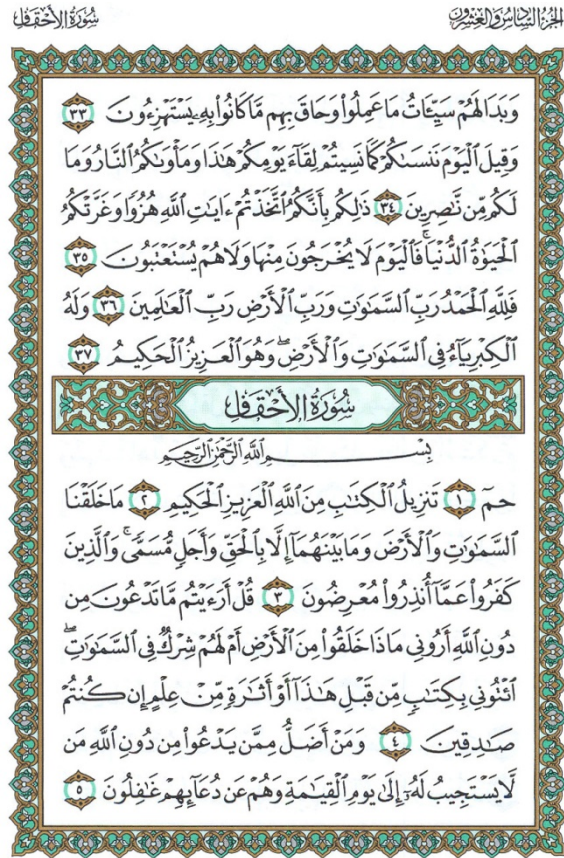 الجزء السادس والعشرون
سورة الأحقاف
وَبَدَا لَهُمْ سَيِّـَٔاتُ مَا عَمِلُوا۟ وَحَاقَ بِهِم مَّا كَانُوا۟ بِهِۦ يَسْتَهْزِءُونَ ٣٣
وَقِيلَ ٱلْيَوْمَ نَنسَىٰكُمْ كَمَا نَسِيتُمْ لِقَآءَ يَوْمِكُمْ هَٰذَا وَمَأْوَىٰكُمُ ٱلنَّارُ وَمَا
لَكُم مِّن نَّٰصِرِينَ ٣٤ ذَٰلِكُم بِأَنَّكُمُ ٱتَّخَذْتُمْ ءَايَٰتِ ٱللَّهِ هُزُوًا وَغَرَّتْكُمُ
ٱلْحَيَوٰةُ ٱلدُّنْيَا ۚ فَٱلْيَوْمَ لَا يُخْرَجُونَ مِنْهَا وَلَا هُمْ يُسْتَعْتَبُونَ ٣٥
فَلِلَّهِ ٱلْحَمْدُ رَبِّ ٱلسَّمَٰوَٰتِ وَرَبِّ ٱلْأَرْضِ رَبِّ ٱلْعَٰلَمِينَ ٣٦ وَلَهُ
ٱلْكِبْرِيَآءُ فِى ٱلسَّمَٰوَٰتِ وَٱلْأَرْضِ ۖ وَهُوَ ٱلْعَزِيزُ ٱلْحَكِيمُ ٣٧
سُورَةُ الأَحْقَافِ
بِسْمِ ٱللَّهِ ٱلرَّحْمَٰنِ ٱلرَّحِيمِ
حمٓ ١ تَنزِيلُ ٱلْكِتَٰبِ مِنَ ٱللَّهِ ٱلْعَزِيزِ ٱلْحَكِيمِ ٢ مَا خَلَقْنَا
ٱلسَّمَٰوَٰتِ وَٱلْأَرْضَ وَمَا بَيْنَهُمَآ إِلَّا بِٱلْحَقِّ وَأَجَلٍ مُّسَمًّى ۚ وَٱلَّذِينَ
كَفَرُوا۟ عَمَّآ أُنذِرُوا۟ مُعْرِضُونَ ٣ قُلْ أَرَءَيْتُم مَّا تَدْعُونَ مِن
دُونِ ٱللَّهِ أَرُونِى مَاذَا خَلَقُوا۟ مِنَ ٱلْأَرْضِ أَمْ لَهُمْ شِرْكٌ فِى ٱلسَّمَٰوَٰتِ ۖ
ٱئْتُونِى بِكِتَٰبٍ مِّن قَبْلِ هَٰذَآ أَوْ أَثَٰرَةٍ مِّنْ عِلْمٍ إِن كُنتُمْ
صَٰدِقِينَ ٤ وَمَنْ أَضَلُّ مِمَّن يَدْعُوا۟ مِن دُونِ ٱللَّهِ مَن
لَّا يَسْتَجِيبُ لَهُۥٓ إِلَىٰ يَوْمِ ٱلْقِيَٰمَةِ وَهُمْ عَن دُعَآئِهِمْ غَٰفِلُونَ ٥